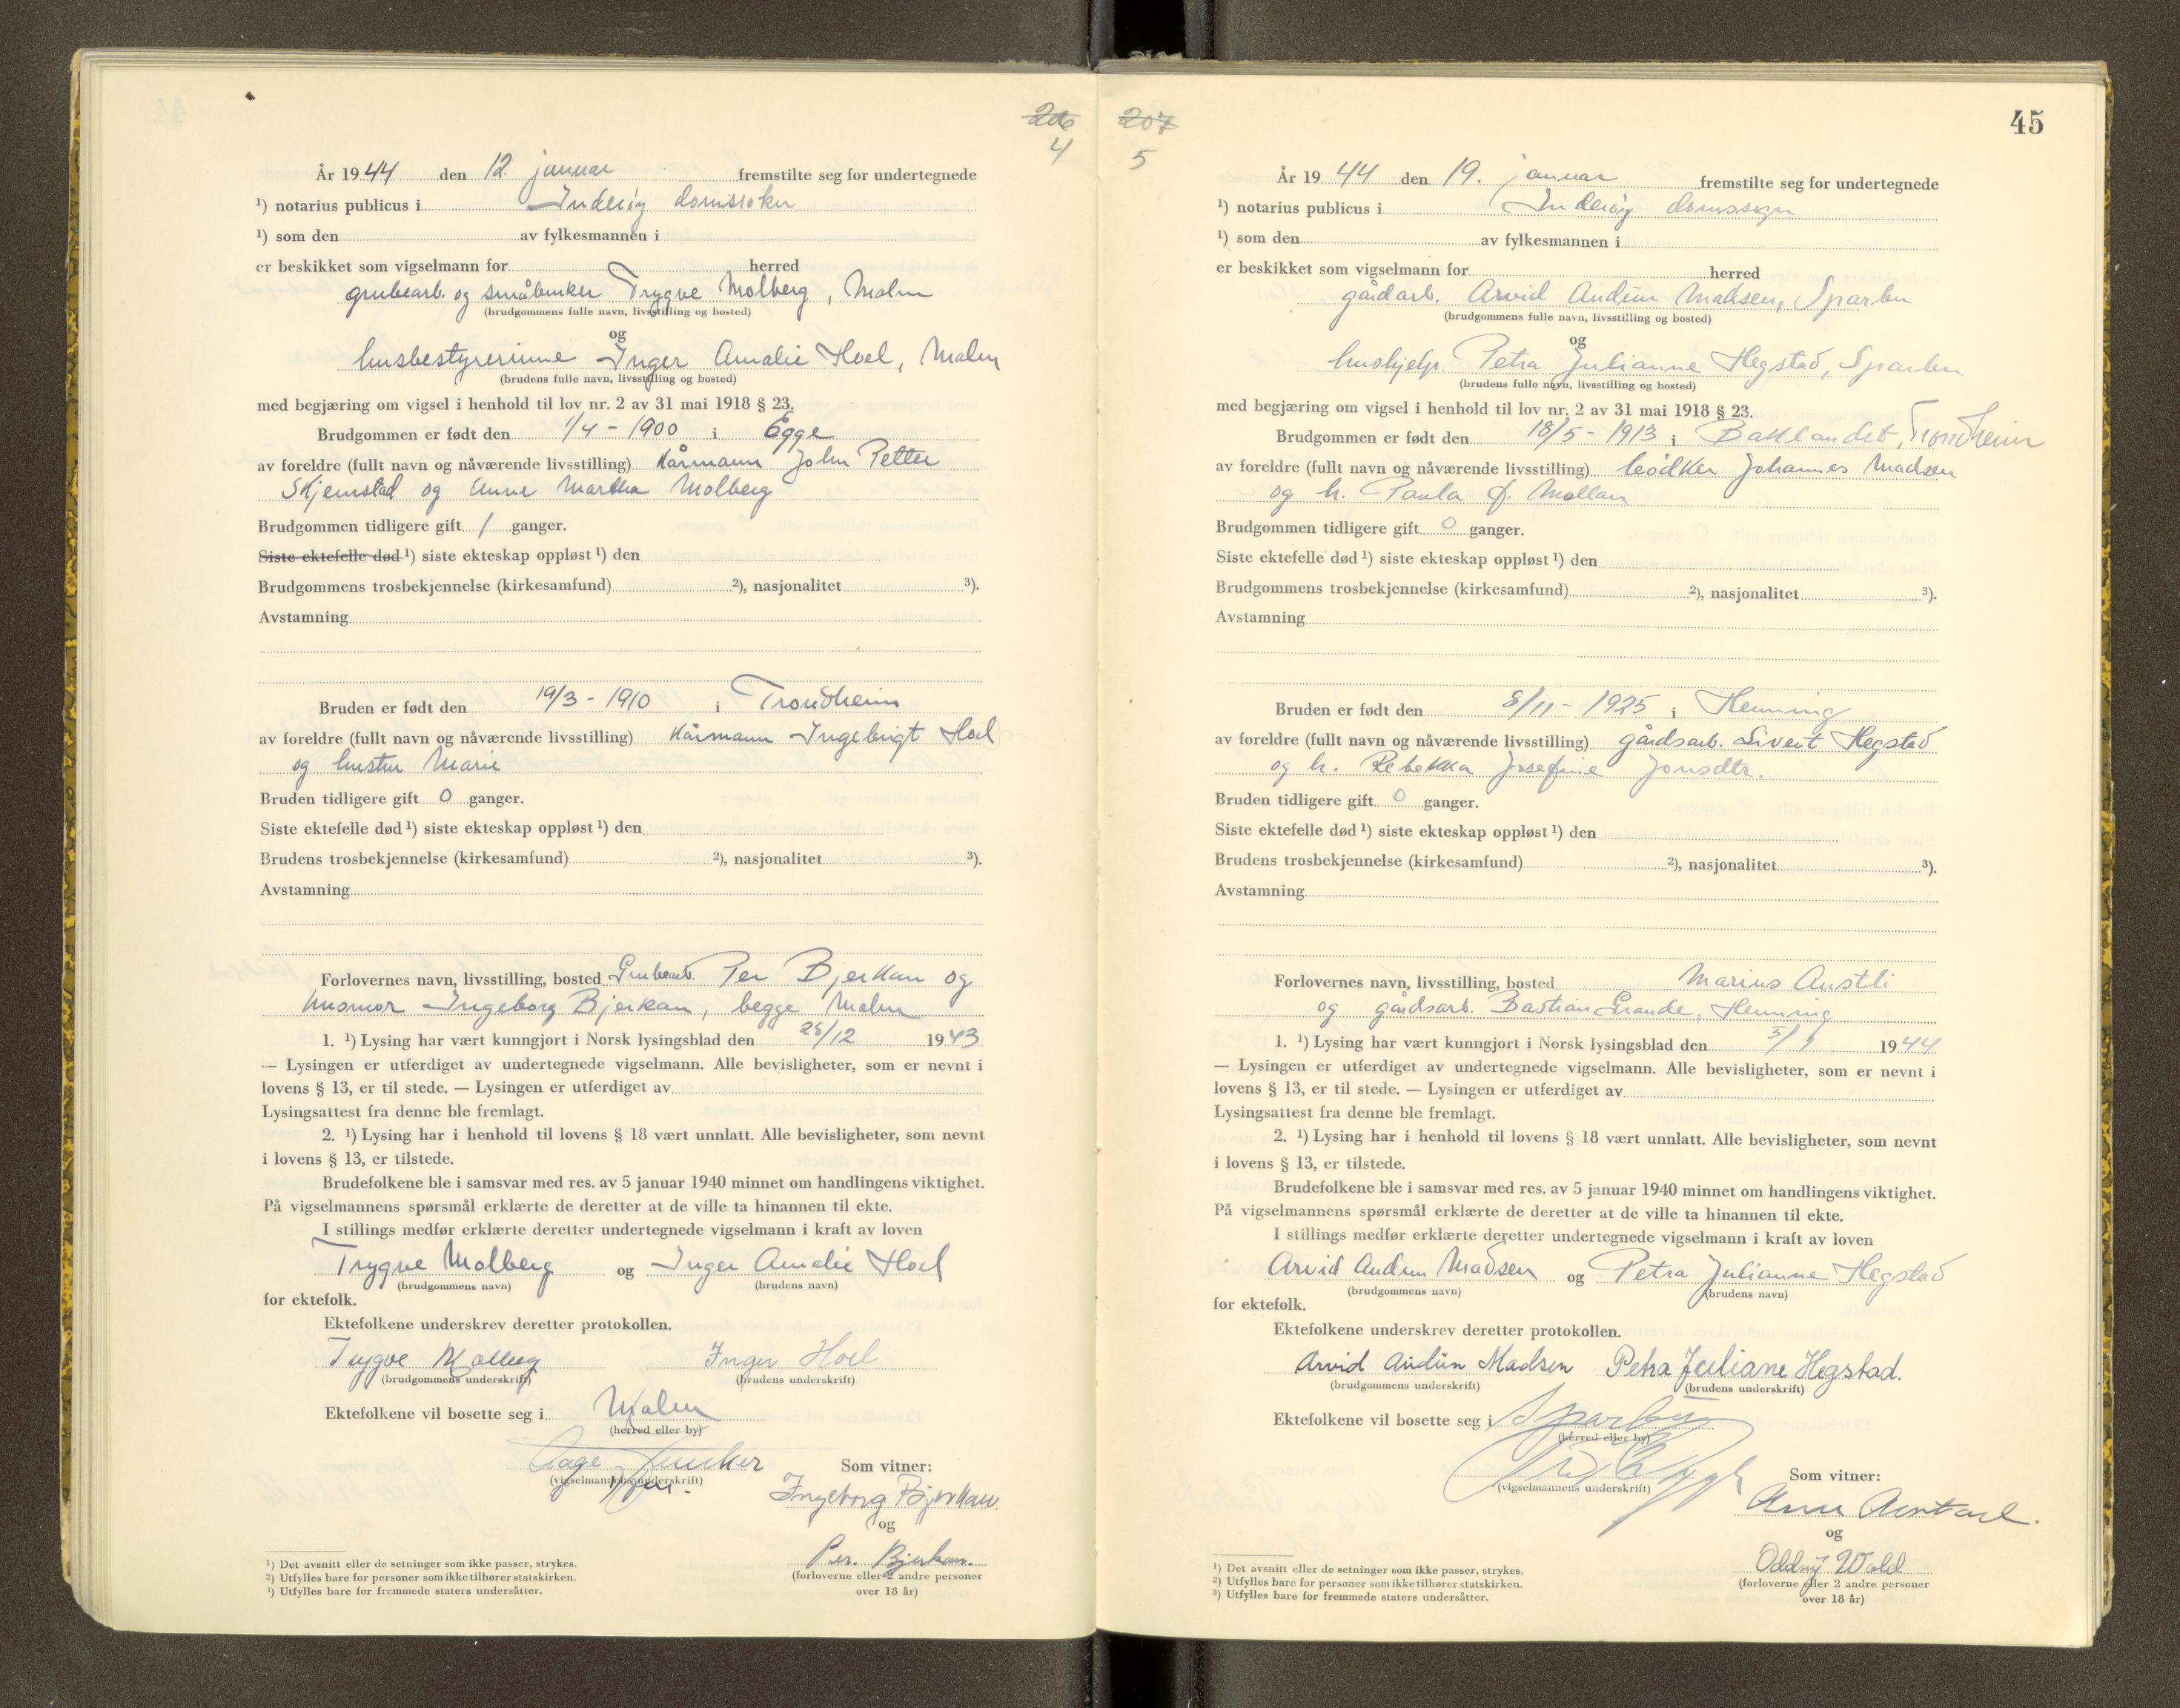 206
4
År 1944 den 12. januar fremstilte seg for undertegnede
¹) notarius publicus i Inderøy domssoken
¹) som den av fylkesmannen i
er beskikket som vigselmann for herred
grubearb. og småbruker Trygve Molberg, Malm
(brudgommens fulle navn, livsstilling og bosted)
og
husbestyrerinne Inger Amalie Hoel, Malm
(brudens fulle navn, livsstilling og bosted)
med begjæring om vigsel i henhold til lov nr. 2 av 31 mai 1918 § 23.
Brudgommen er født den 1/4 - 1900 i Egge
av foreldre (fullt navn og nåværende livsstilling) Kårmann John Petter
Skjemstad og Anne Martha Molberg
Brudgommen tidligere gift 1 ganger.
Siste ektefelle død ¹) siste ekteskap oppløst ¹) den
Brudgommens trosbekjennelse (kirkesamfund) ²), nasjonalitet ³).
Avstamning
Bruden er født den 19/3 - 1910 i Trondheim
av foreldre (fullt navn og nåværende livsstilling) Kårmann Ingebrigt Hoel
og hustru Marie
Bruden tidligere gift 0 ganger.
Siste ektefelle død ¹) siste ekteskap oppløst ¹) den
Brudens trosbekjennelse (kirkesamfund) ²), nasjonalitet ³).
Avstamning
Forlovernes navn, livsstilling, bosted Grubearb. Per Bjerkan og
husmor Ingeborg Bjerkan, begge Malm
1. ¹) Lysing har vært kunngjort i Norsk lysingsblad den 28/12 1943
— Lysingen er utferdiget av undertegnede vigselmann. Alle bevisligheter, som er nevnt i
lovens § 13, er til stede. — Lysingen er utferdiget av
Lysingsattest fra denne ble fremlagt.
2. ¹) Lysing har i henhold til lovens § 18 vært unnlatt. Alle bevisligheter, som nevnt
i lovens § 13, er tilstede.
Brudefolkene ble i samsvar med res. av 5 januar 1940 minnet om handlingens viktighet.
På vigselmannens spørsmål erklærte de deretter at de ville ta hinannen til ekte.
I stillings medfør erklærte deretter undertegnede vigselmann i kraft av loven
Trygve Molberg og Inger Amalie Hoel
(brudgommens navn) (brudens navn)
for ektefolk.
Ektefolkene underskrev deretter protokollen.
Trygve Molberg Inger Hoel
(brudgommens underskrift) (brudens underskrift)
Ektefolkene vil bosette seg i Malm
(herred eller by)
Aage Junker Som vitner:
(vigselmannens underskrift)
Ingeborg Bjerkan.
og
Per. Bjerkan.
(forloverne eller 2 andre personer
over 18 år)
¹) Det avsnitt eller de setninger som ikke passer, strykes.
²) Utfylles bare for personer som ikke tilhører statskirken.
¹) Utfylles bare for fremmede staters undersåtter.
207
5
45
År 1944 den 19. januar fremstilte seg for undertegnede
¹) notarius publicus i Inderøy domssogn
¹) som den av fylkesmannen i
er beskikket som vigselmann for herred
gårdarb. Arvid Audun Madsen, Sparbu
(brudgommens fulle navn, livsstilling og bosted)
og
hushjelp. Petra Julianne Hegstad, Sparbu
(brudens fulle navn, livsstilling og bosted)
med begjæring om vigsel i henhold til lov nr. 2 av 31 mai 1918 § 23.
Brudgommen er født den 18/5 - 1913 i Baklandet, Trondheim
av foreldre (fullt navn og nåværende livsstilling) bødker Johannes Madsen
og h. Paula f. Mollan
Brudgommen tidligere gift 0 ganger.
Siste ektefelle død ¹) siste ekteskap oppløst ¹) den
Brudgommens trosbekjennelse (kirkesamfund) ²), nasjonalitet ³).
Avstamning
Bruden er født den 8/11 - 1925 i Henning
av foreldre (fullt navn og nåværende livsstilling) gårdsarb. Sivert Hegstad
og h. Rebekka Josefine Jonsdtr.
Bruden tidligere gift 0 ganger.
Siste ektefelle død ¹) siste ekteskap oppløst ¹) den
Brudens trosbekjennelse (kirkesamfund) ²), nasjonalitet ³).
Avstamning
Forlovernes navn, livsstilling, bosted Marius Austli
og gårdsarb. Bastian Grande, Henning
1. ¹) Lysing har vært kunngjort i Norsk lysingsblad den 5/1 1944
— Lysingen er utferdiget av undertegnede vigselmann. Alle bevisligheter, som er nevnt i
lovens § 13, er til stede. — Lysingen er utferdiget av
Lysingsattest fra denne ble fremlagt.
2. ¹) Lysing har i henhold til lovens § 18 vært unnlatt. Alle bevisligheter, som nevnt
i lovens § 13, er tilstede.
Brudefolkene ble i samsvar med res. av 5 januar 1940 minnet om handlingens viktighet.
På vigselmannens spørsmål erklærte de deretter at de ville ta hinannen til ekte.
I stillings medfør erklærte deretter undertegnede vigselmann i kraft av loven
Arvid Audun Madsen og Petra Julianne Hegstad
(brudgommens navn) (brudens navn)
for ektefolk.
Ektefolkene underskrev deretter protokollen.
Arvid Audun Madsen Petra Juliane Hegstad.
(brudgommens underskrift) (brudens underskrift)
Ektefolkene vil bosette seg i Sparbu
(herred eller by)
Som vitner:
(vigselmannens underskrift)
og
Oddny Wold
(forloverne eller 2 andre personer
over 18 år)
¹) Det avsnitt eller de setninger som ikke passer, strykes.
²) Utfylles bare for personer som ikke tilhører statskirken.
³) Utfylles bare for fremmede staters undersåtter.